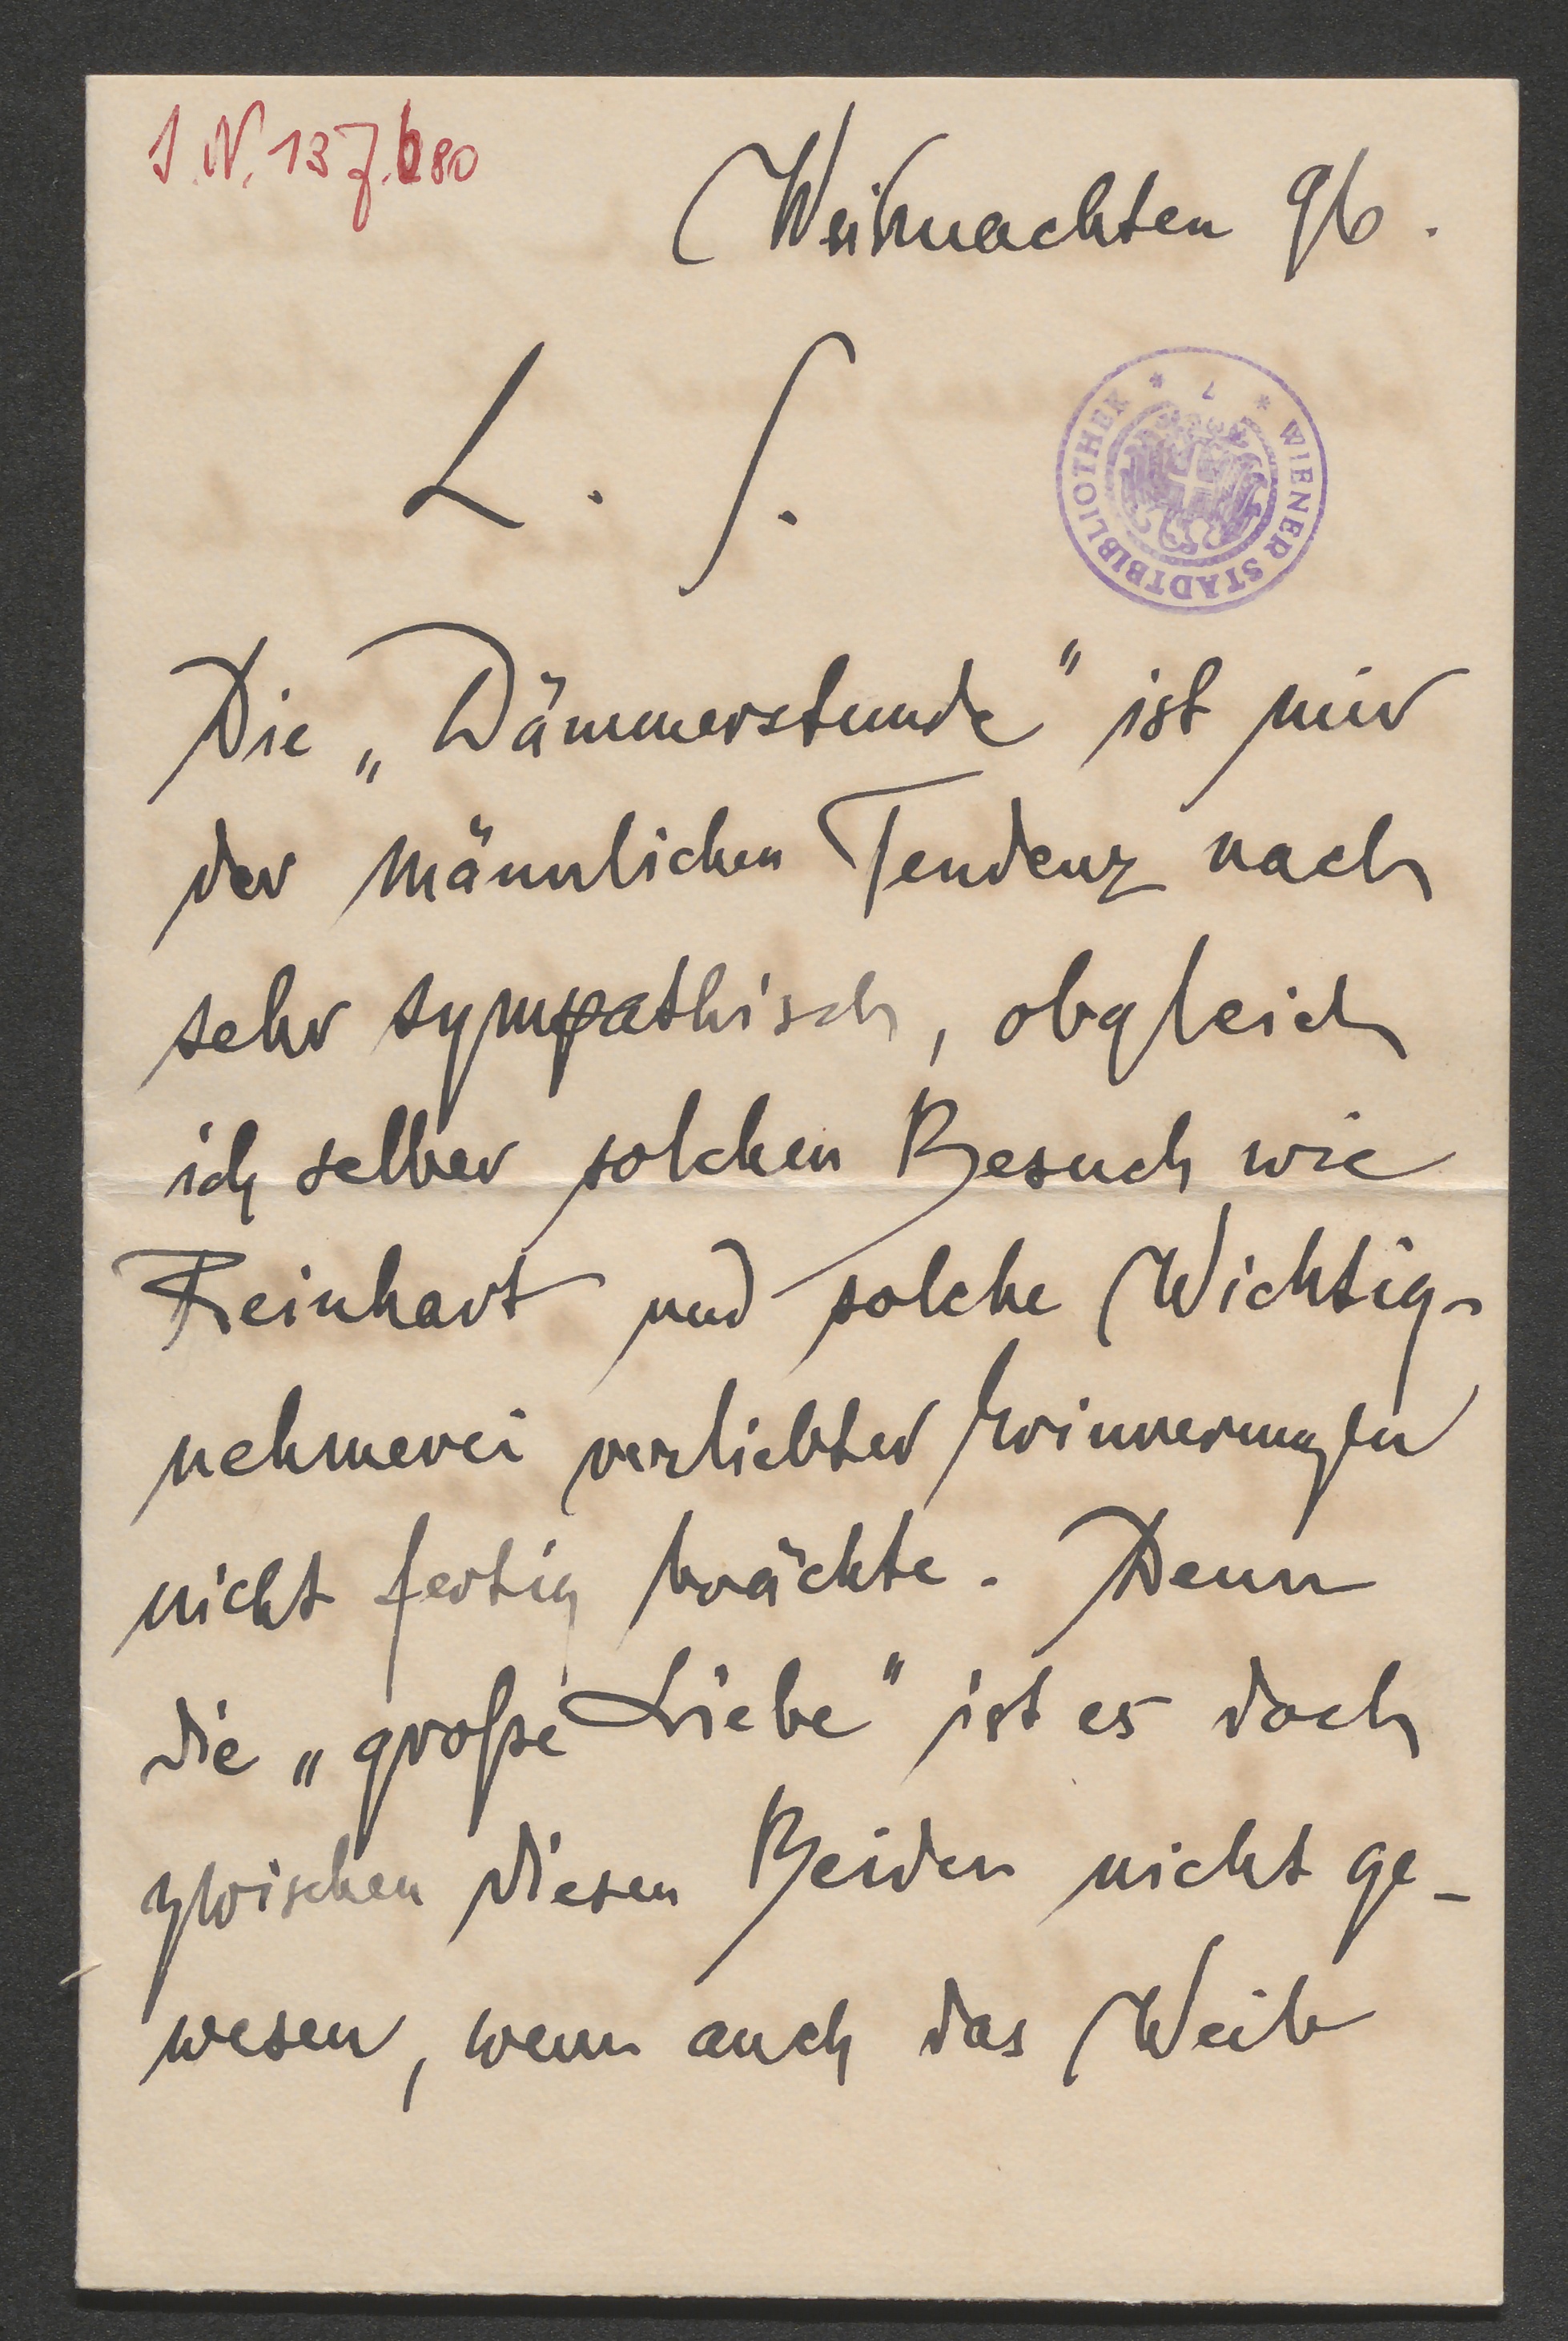 I.N. 137.680
Weihnachten 96.
L. S.
WIENER STADTBIBLIOTHEK * 7 *
Die „Dämmerstunde" ist mir
der männlichen Tendenz nach
sehr sympathisch, obgleich
ich selber solchen Besuch wie
Reinhart und solche Wichtig-
nehmerei verliebter Erinnerungen
nicht fertig brächte. Denn
die „große Liebe" ist es doch
zwischen diesen Beiden nicht ge-
wesen, wenn auch das Weib